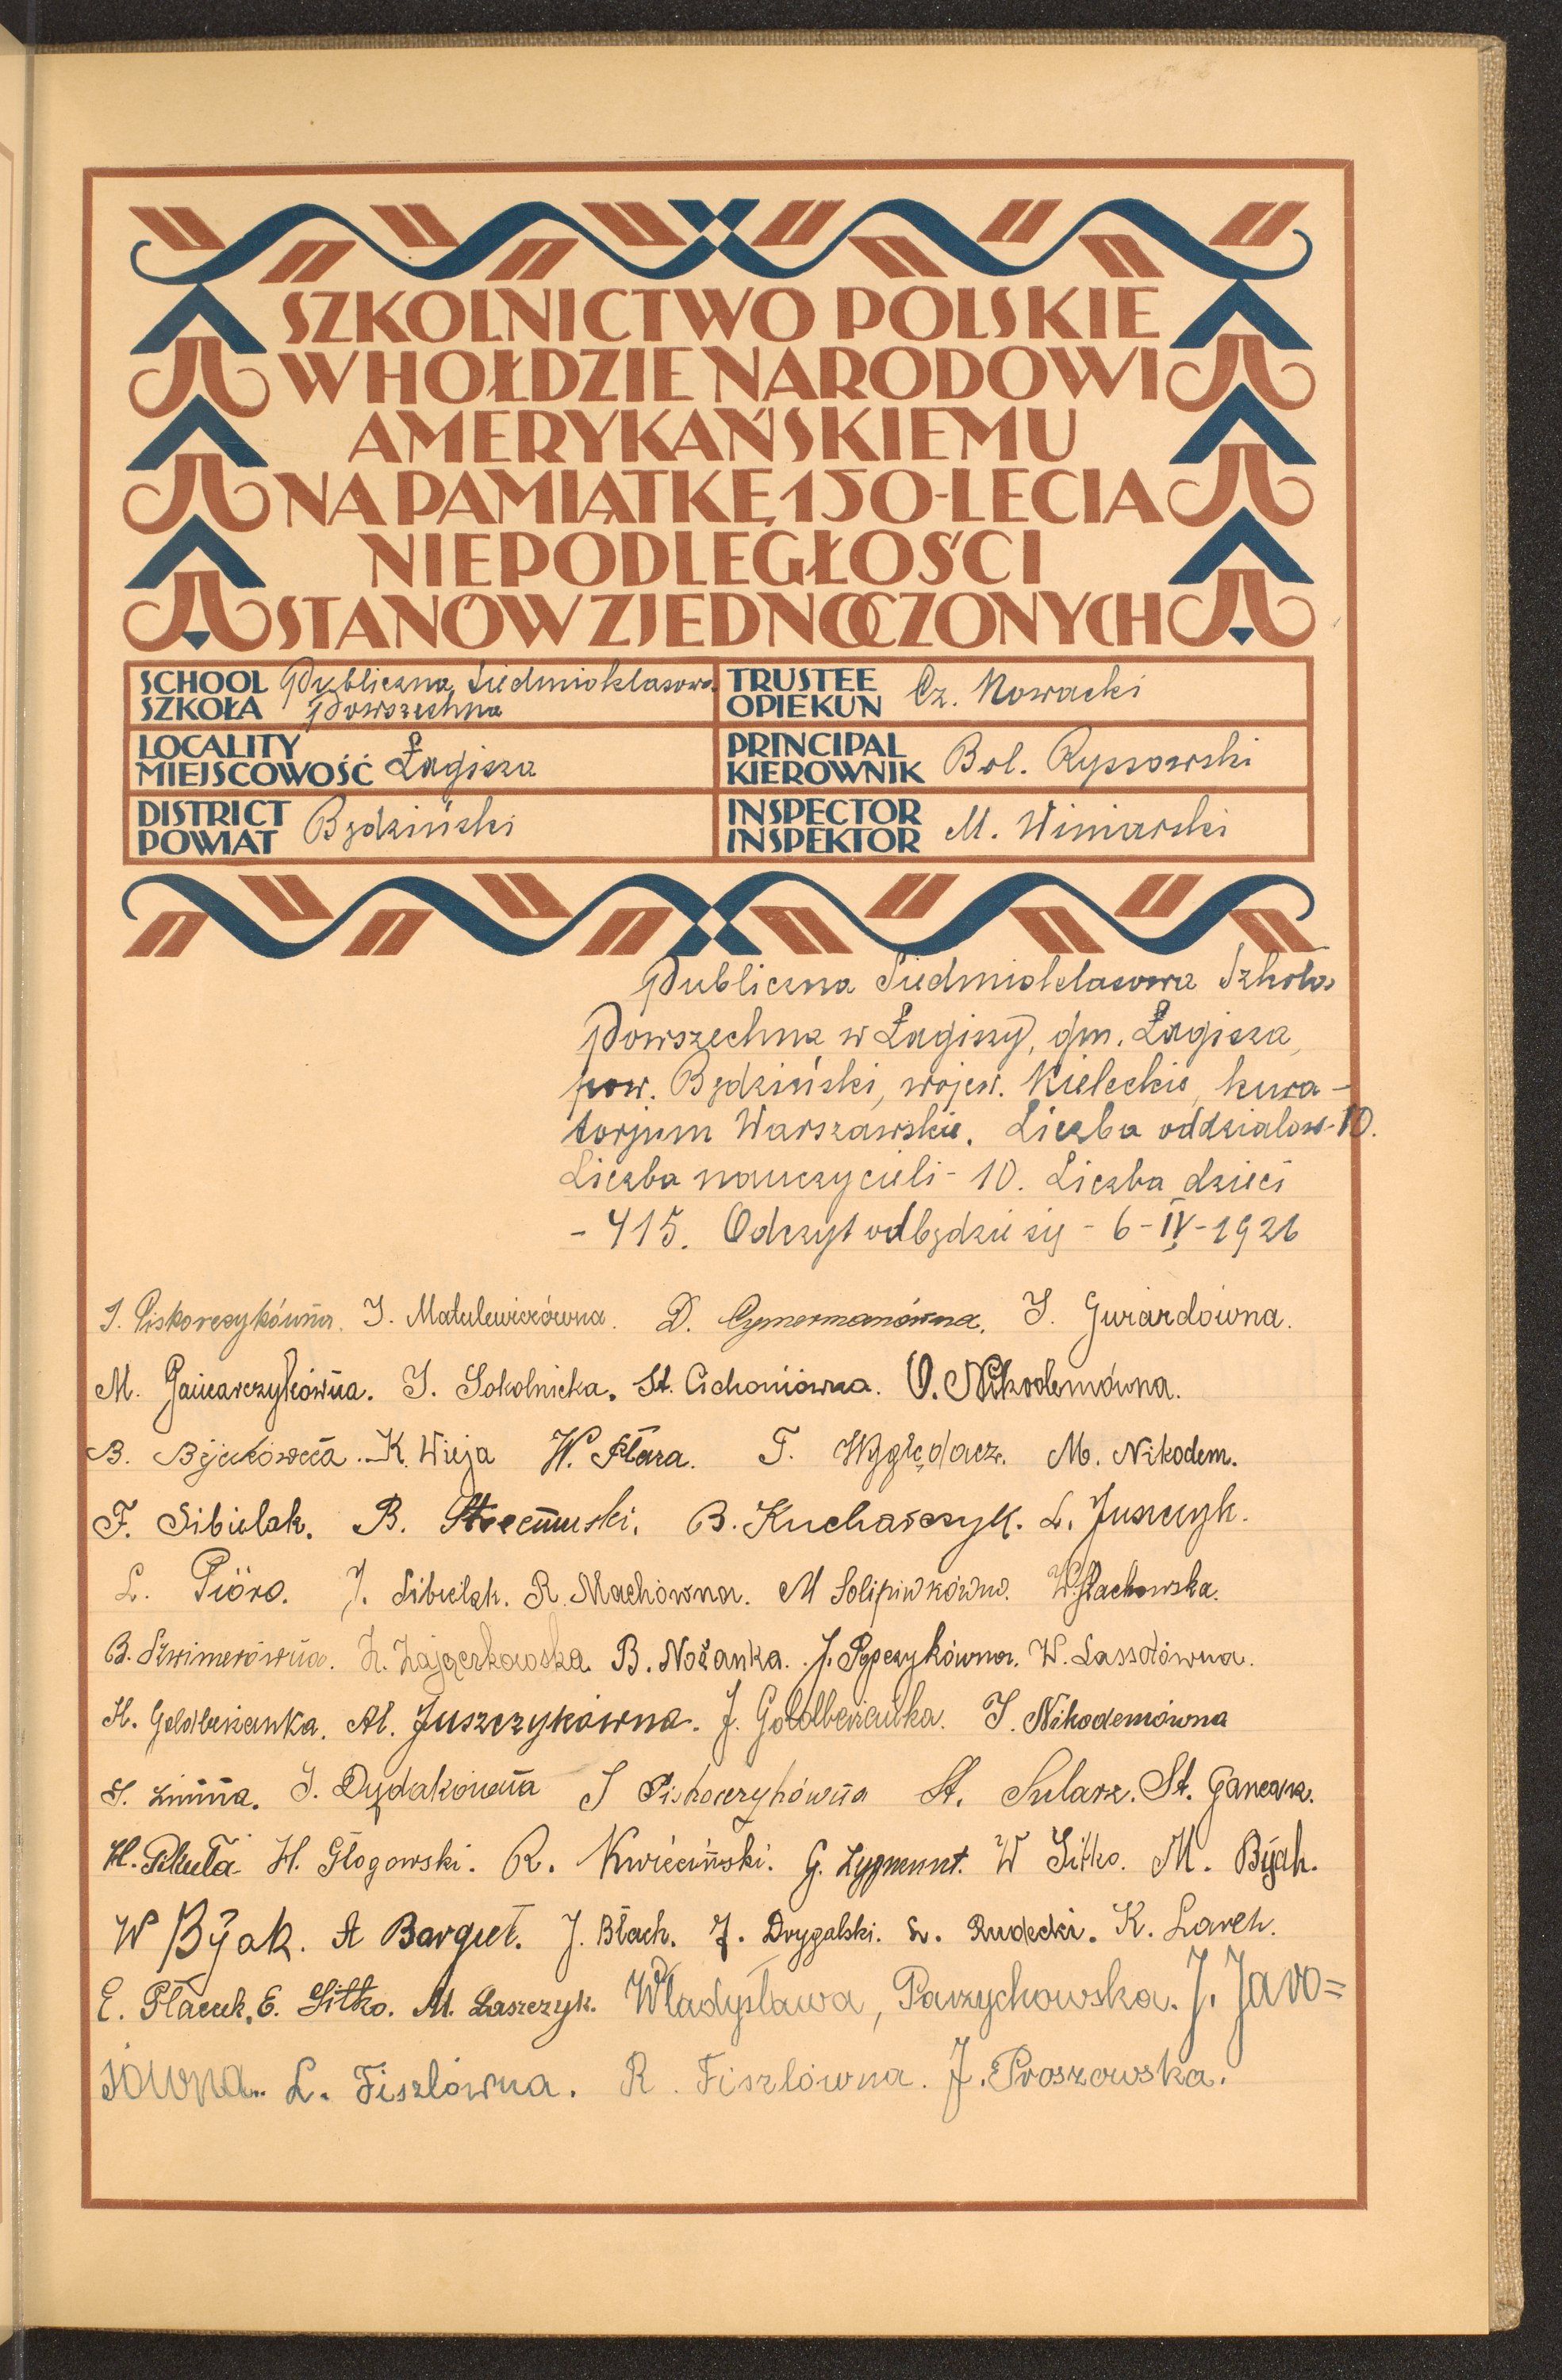 SZKOLNICTWO POLSKIE
W HOŁDZIE NARODOWI
AMERYKAŃSKIEMU
NA PAMIĄTKĘ 150-LECIA
NIEPODLEGŁOŚCI
STANÓW ZJEDNOCZONYCH
SCHOOL SZKOŁA Publiczna Siedmioklasowa Powszechna
TRUSTEE OPIEKUN Cz. Nowacki
LOCALITY MIEJSCOWOŚĆ Łagisza
PRINCIPAL KIEROWNIK Bol. Ryssowski
DISTRICT POWIAT Będziński
INSPECTOR INSPEKTOR M. Winiarski
Publiczna Siedmioklasowa Szkoła
Powszechna w Łagiszy, gm. Łagisza,
pow. Będziński, wojew. Kieleckie, kura-
torjum Warszawskie. Liczba oddziałów-10.
Liczba nauczycieli - 10. Liczba dzieci
- 415. Odczyt odbędzie się - 6-IV-1926
J. Piskorczykówna. J. Matulewiczówna. D. Cymermanówna. J. Gwiazdówna.
M. Gancarczykówna. J. Sokolnicka. St. Cichoniówna. O. Nikodemówna.
B. Bijakówna. K. Wieja W. Flara. T. Wyględacz. M. Nikodem.
F. Sibielak. B. B. Kucharczyk. L. Juszczyk.
L. Pióro. J. Sibielak. R. Machówna. M Solipiwkówna. W. Stachowska.
B. Szwimerówna. Z. Zajączkowska. B. Nożanka. J. Popczykówna. W. Lassotówna.
H. Goldberżanka. Al. Juszczykówna. J. Goldberżanka. J. Nikodemówna
S. Zimna. J. Dydakówna J Piskorczykówna St. Sularz. St. Gancarz.
H. Pikuła H. Głogowski. R. Kwieciński. G. Zygmunt. W Sitko. M. Byjak.
W Byjak. A Bargieł. J. Błach. J. Drygalski. L. Rudecki. K. Larch.
E. Placek. E. Sitko. M. Laszczyk. Władysława, Parzychowska. J. Jaro=
siówna. L. Fiszlówna. R. Fiszlówna. J. Proszowska.